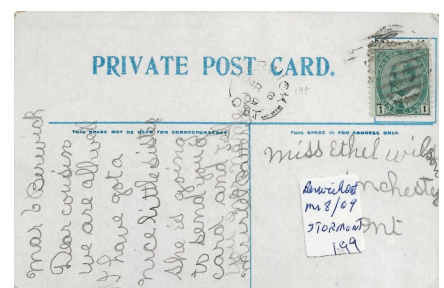 PRIVATE POST CARD.
THIS SPACE MAY BE USED FOR CORRESPONDENCE
THIS SPACE IS FOR ADDRESS ONLY.
mar 6 Berwick
Dear cousin
we are all well
I have got a
nice little sister
she is going
to send you a
card and
Miss Ethel
inchester
Ont
Berwick Ont
mr 8/09
STORMONT
1.99
1
1